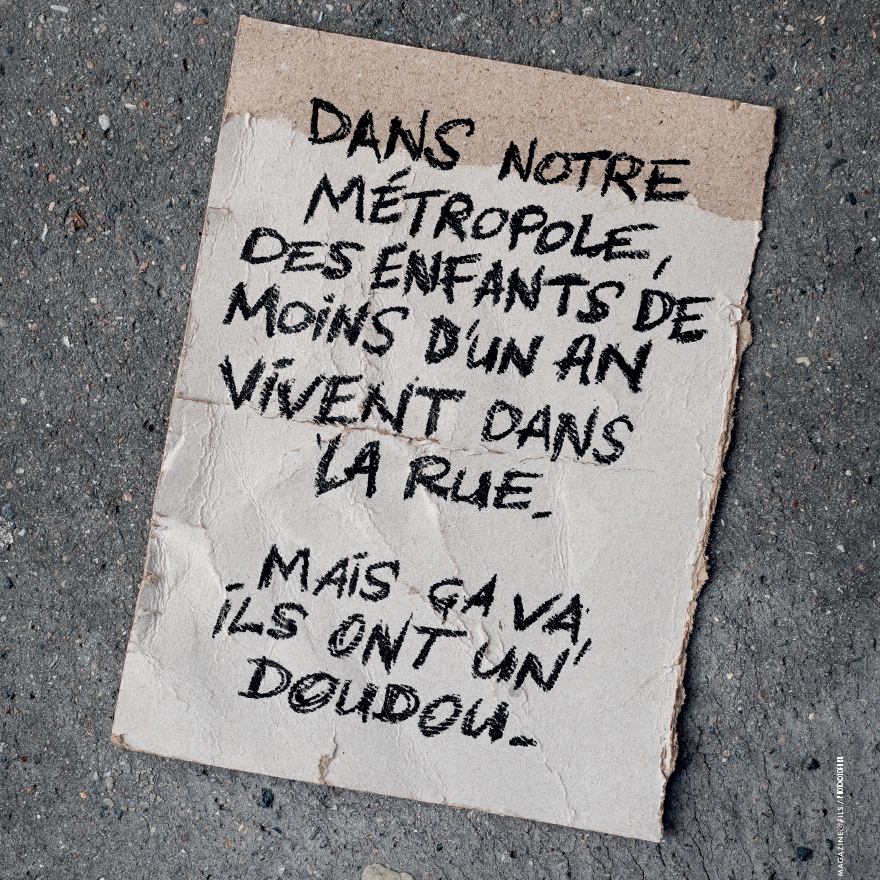 DANS NOTRE
MÉTROPOLE,
DES ENFANTS DE
MOINS D'UN AN
VIVENT DANS
LA RUE.
MAIS ÇA VA,
ILS ONT UN
DOUDOU.
MAGAZINE